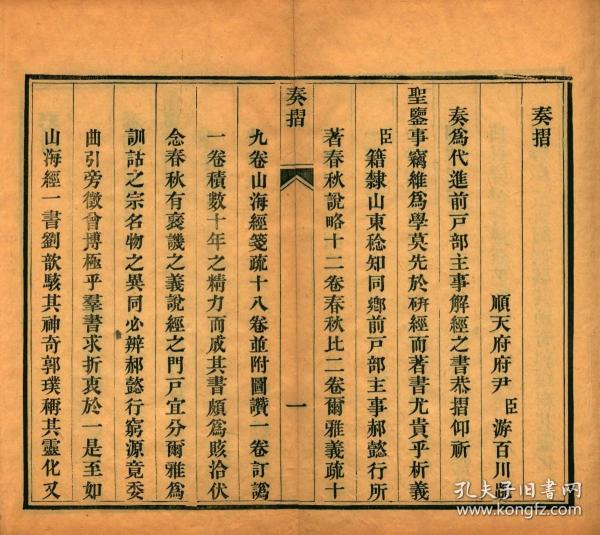 奏摺
順天府府尹臣游百川跪
奏爲代進前戸部主事解經之書恭摺仰祈
聖鑒事竊維爲學莫先於硏經而著書尤貴乎析義
臣籍隸山東稔知同鄉前戸部主事郝懿行所
著春秋說略十二卷春秋比二卷爾雅義疏十
奏摺
一
九卷山海經箋疏十八卷並附圖讚一卷訂譌
一卷積數十年之精力而成其書頗爲賅洽伏
念春秋有襃譏之義說經之門戸宜分爾雅爲
訓詁之宗名物之異同必辨郝懿行窮源竟委
曲引旁徵曾博極乎羣書求折衷於一是至如
山海經一書劉歆駭其神奇郭璞稱其靈化又
孔夫子旧书网
www.kongfz.com